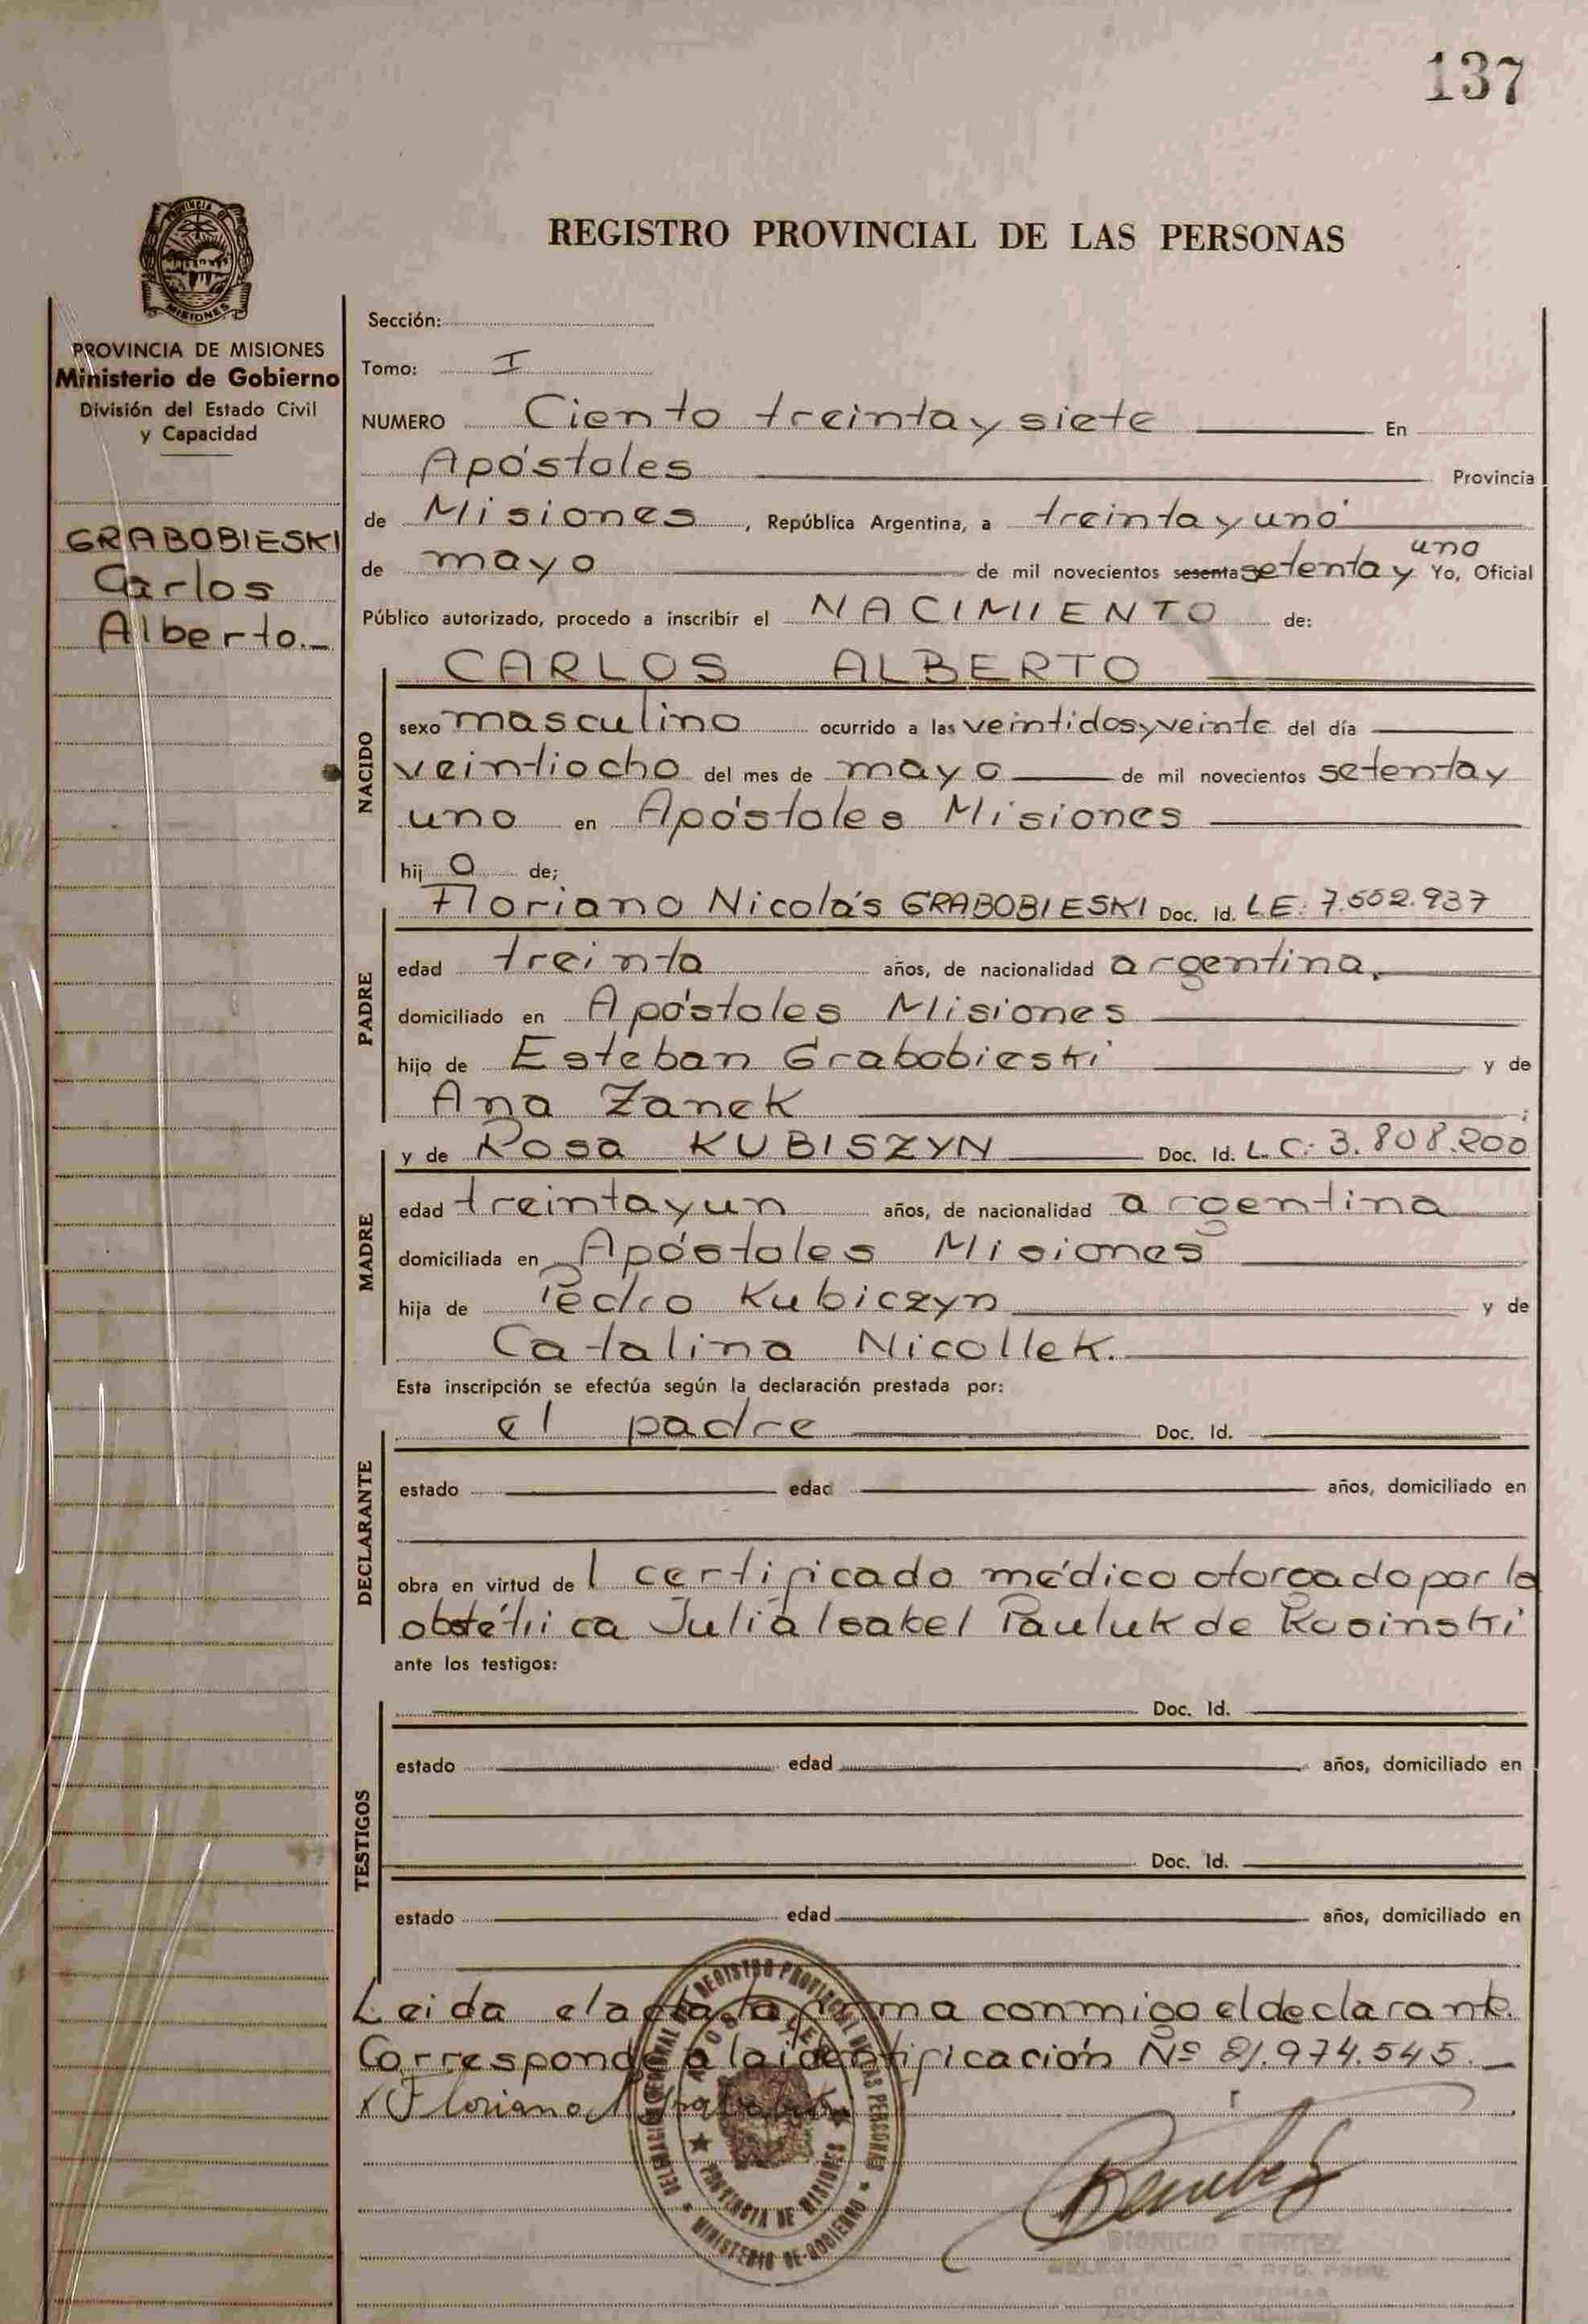 137
PROVINCIA DE
MISIONES
REGISTRO PROVINCIAL DE LAS PERSONAS
PROVINCIA DE MISIONES
Ministerio de Gobierno
División del Estado Civil
y Capacidad
GRABOBIESKI
Carlos
Alberto.-
Sección:
Tomo: I
NUMERO Ciento treinta y siete En
Apóstoles Provincia
de Misiones, República Argentina, a treinta y uno
de mayo de mil novecientos sesenta setenta y uno Yo, Oficial
Público autorizado, procedo a inscribir el NACIMIENTO de:
CARLOS ALBERTO
NACIDO
sexo masculino ocurrido a las veintidos y veinte del día
veintiocho del mes de mayo de mil novecientos setenta y
uno en Apóstoles Misiones
hijo de;
PADRE
Floriano Nicolás GRABOBIESKI Doc. Id. L.E: 7.552.937
edad treinta años, de nacionalidad argentina,
domiciliado en Apóstoles Misiones
hijo de Esteban Grabobieski y de
Ana Zanek ;
MADRE
y de Rosa KUBISZYN Doc. Id. L.C: 3.808.200
edad treinta y un años, de nacionalidad argentina
domiciliada en Apóstoles Misiones
hija de Pedro Kubiczyn y de
Catalina Nicollek.
Esta inscripción se efectúa según la declaración prestada por:
DECLARANTE
el padre Doc. Id.
estado edad años, domiciliado en
obra en virtud del certificado médico otorgado por la
obstétrica Julia Isabel Pauluk de Rosinski
ante los testigos:
TESTIGOS
Doc. Id.
estado edad años, domiciliado en
Doc. Id.
estado edad años, domiciliado en
Leida el acta la firma conmigo el declarante.
Corresponde a la identificación Nº 21.974.545.-
x Floriano N
DELEGACION REGIONAL DEL REGISTRO PROVINCIAL DE LAS PERSONAS
APOSTOLES
PROVINCIA DE MISIONES
MINISTERIO DE GOBIERNO
DIONICIO BENITEZ